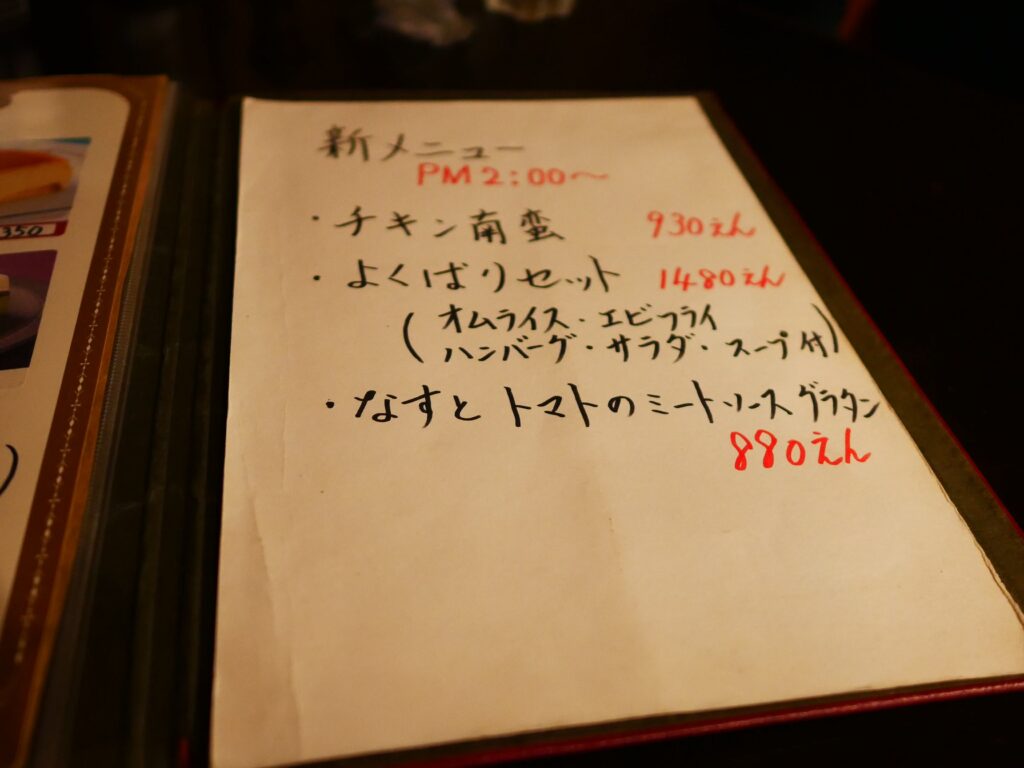 350
新メニュー
PM2:00〜
・チキン南蛮 930えん
・よくばりセット 1480えん
(オムライス・エビフライ
ハンバーグ・サラダ・スープ付)
・なすとトマトのミートソースグラタン
880えん